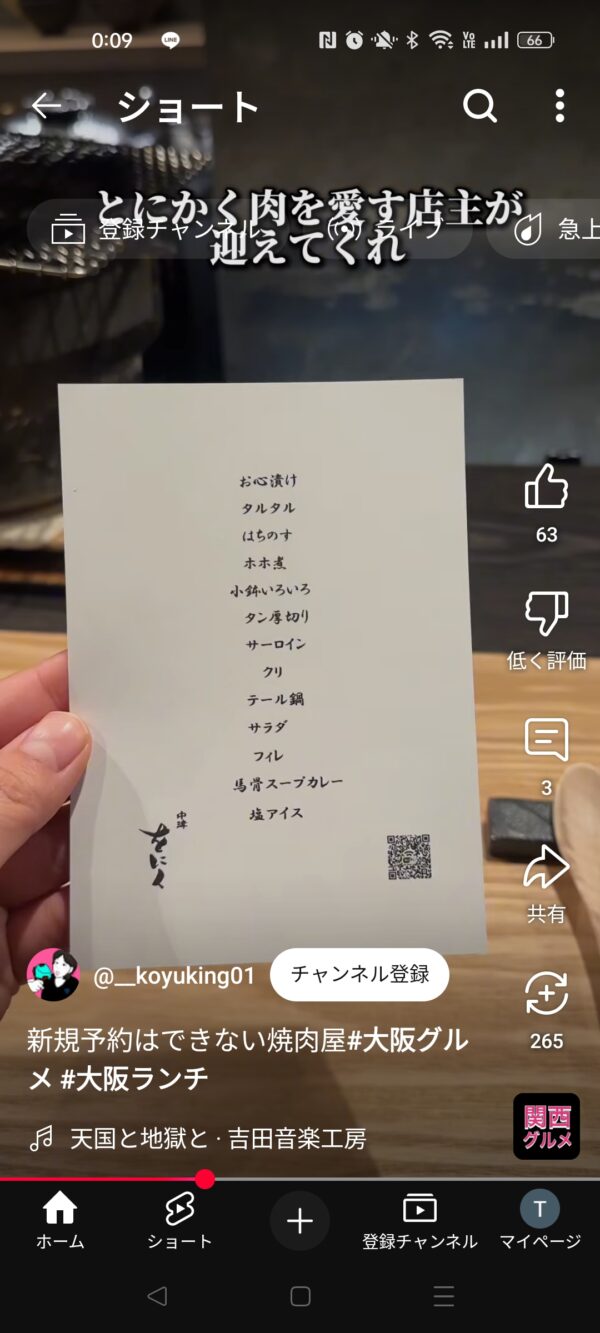 0:09
LINE
VO LTE
66
ショート
とにかく肉を愛す店主が
迎えてくれ
登録チャンネル
ライブ
急上
お心漬け
タルタル
はちのす
ホホ煮
小鉢いろいろ
タン厚切り
サーロイン
クリ
テール鍋
サラダ
フィレ
馬骨スープカレー
塩アイス
をにく
63
低く評価
3
共有
265
@__koyuking01
チャンネル登録
新規予約はできない焼肉屋#大阪グル
メ #大阪ランチ
天国と地獄と · 吉田音楽工房
関西
グルメ
ホーム
ショート
登録チャンネル
T
マイページ